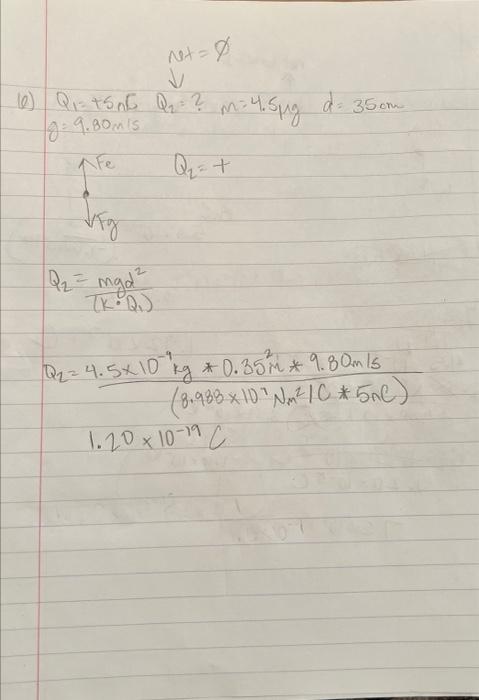 net = Ø
6) Q₁ = +5nC Q₂ = ? m = 4.5μg d = 35cm
g = 9.80m/s
Fe
Q₂ = +
Fg
Q₂ = mgd²
(K • Q₁)
Q₂ = 4.5 x 10⁻⁹ kg * 0.35²m * 9.80m/s
(8.988 x 10⁹ Nm²/C * 5nC)
1.20 x 10⁻¹⁹ C